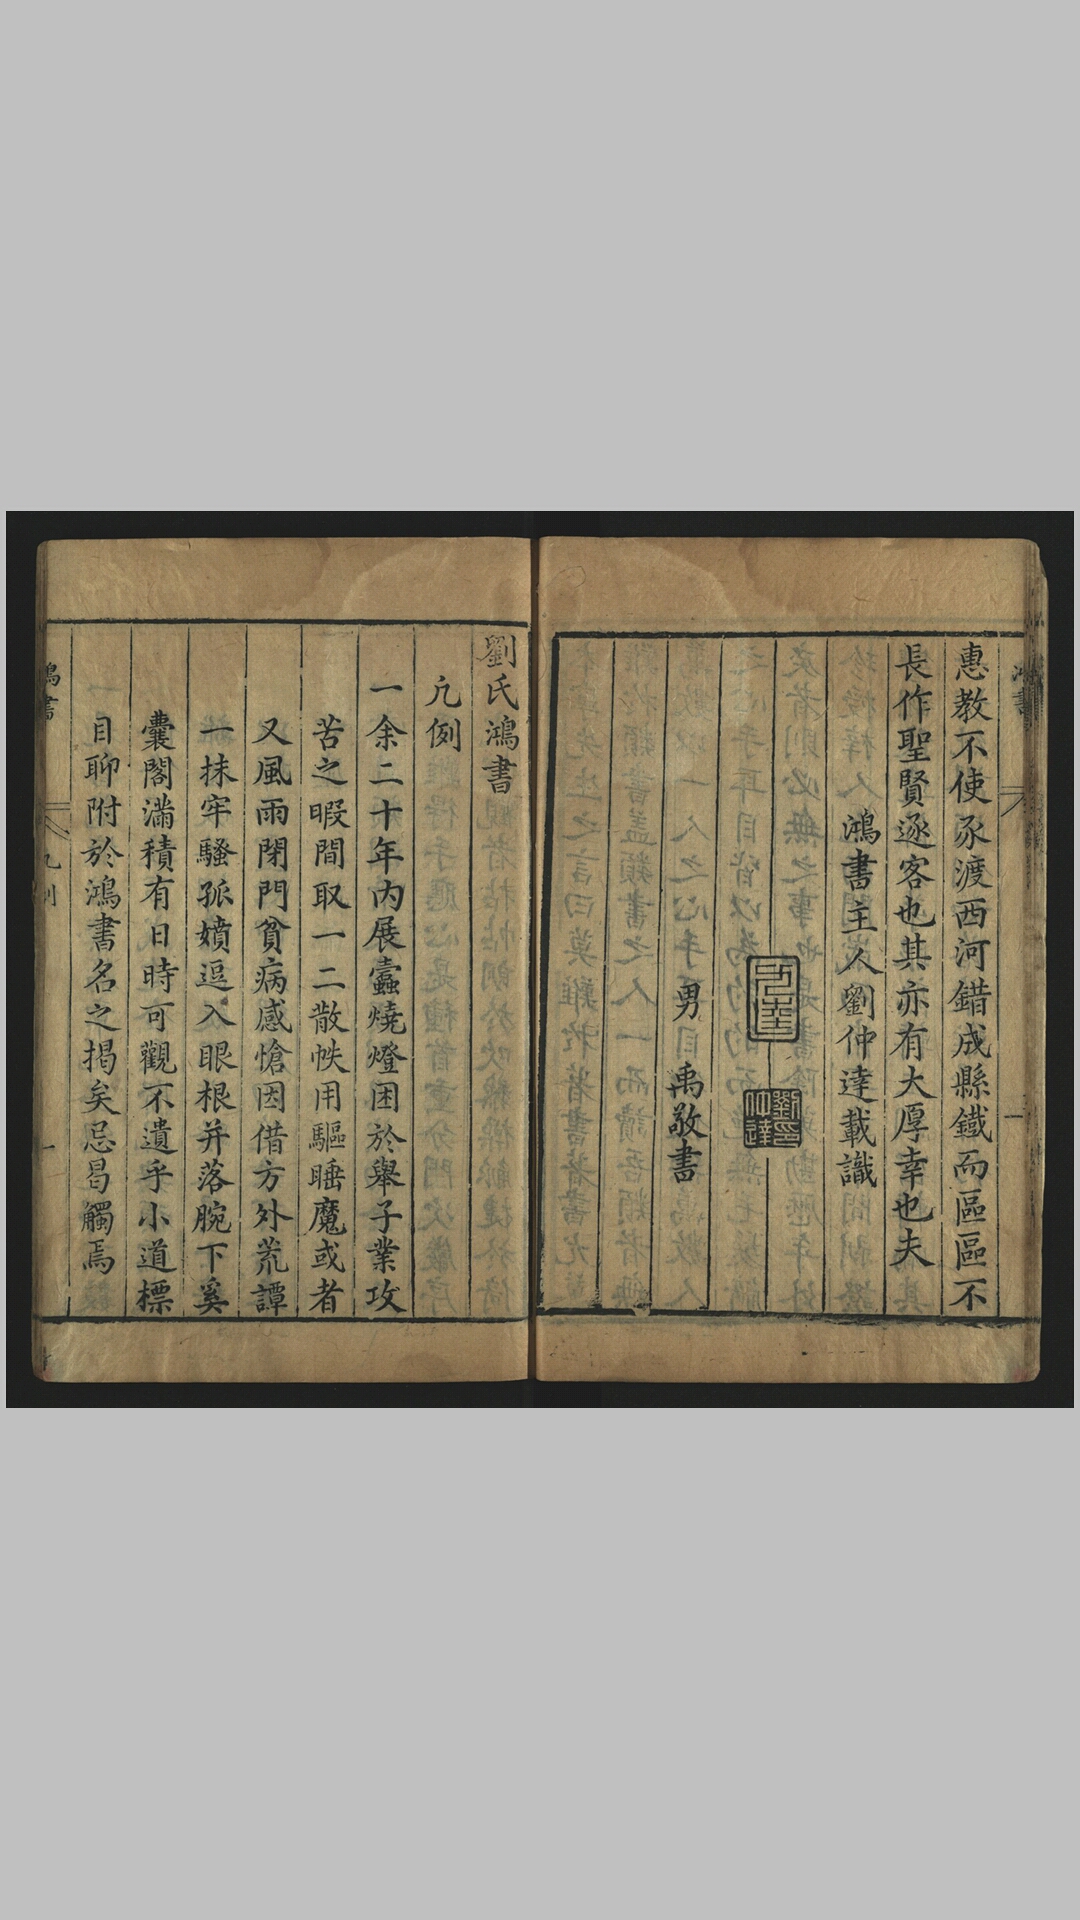 惠教不使豕渡西河錯成縣鐵而區區不
長作聖賢逐客也其亦有大厚幸也夫
鴻書主人劉仲達載識
男 禹敬書
劉氏鴻書
凡例
一余二十年內展蠹燒燈困於舉子業攻
苦之暇間取一二散帙用驅睡魔或者
又風雨閉門貧病感愴因借方外荒譚
一抹牢騷孤憤逗入眼根并落腕下奚
囊閣滿積有日時可觀不遺乎小道標
目聊附於鴻書名之揭矣忌曷觸焉
鴻書
凡例
一